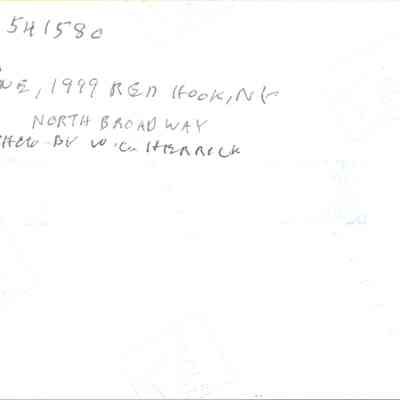 541580
NE, 1999 RED HOOK, NY
NORTH BROADWAY
BY W.C. HERRICK